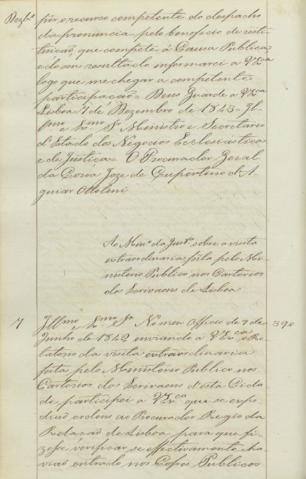 Dezbro
fôr, o recurso competente do despacho
da pronuncia pelo beneficio de resti-
tuição, que compete á Causa Publica
e do seu resultado informarei a V. Exca
logo que me chegar a competente
participação. Deus Guarde a V. Exca
Lisboa 7 de Dezembro de 1843. Il.
mo e Exmo Sr Ministro e Secretario
d'Estado dos Negocios Ecclesiasticos
e de Justiça. O Procurador Geral
da Coroa Joze de Cupertino de A
guiar Ottolini
Ao Mino da Jusça sobre a visita
extraordinaria feita pelo Mi-
nisterio Publico nos Cartorios
dos Escrivaens de Lisboa
7 Illmo e Exmo Sr No meu Officio de 7 de
Junho de 1842 enviando a V. Exca o Re-
latorio da visita extraordinaria
feita pelo Ministerio Publico nos
Cartorios dos Escrivaens d'esta Cida-
de participei a V. Exca que se expe-
dira ordem ao Procurador Regio da
Relação de Lisboa para que fi-
zesse verificar se effectivamente ha
viao entrado nos Cofres Publicos